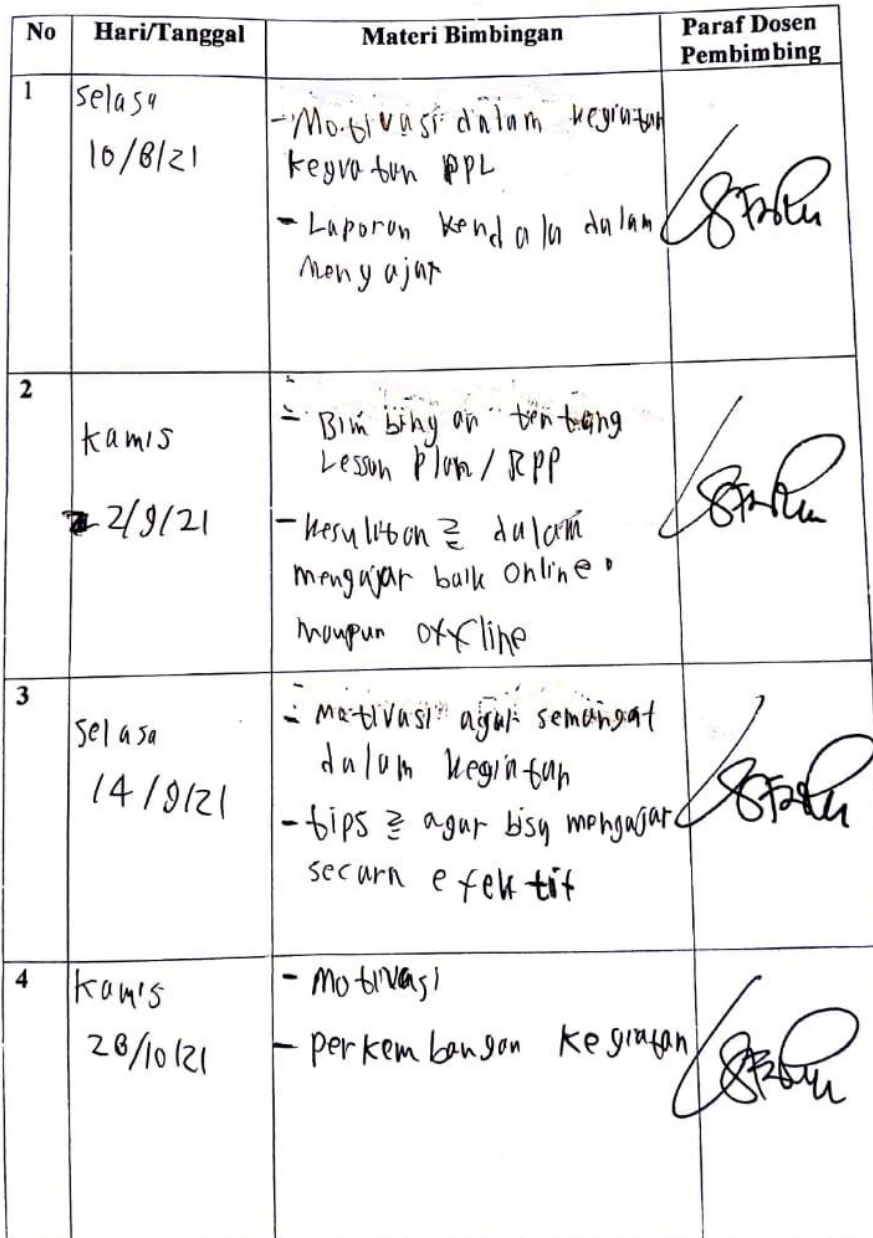 No Hari/Tanggal Materi Bimbingan Paraf Dosen
Pembimbing
1 Selasa
10/8/21
- Motivasi dalam kegiatan
kegiatan PPL
- Laporan kendala dalam
Mengajar
2 Kamis
2/9/21
- Bimbingan tentang
Lesson Plan / RPP
- Kesulitan 2 dalam
mengajar baik Online
maupun offline
3 Selasa
14/9/21
- Motivasi agar semangat
dalam kegiatan
- tips 2 agar bisa mengajar
secara efektif
4 Kamis
28/10/21
- Motivasi
- perkembangan kegiatan